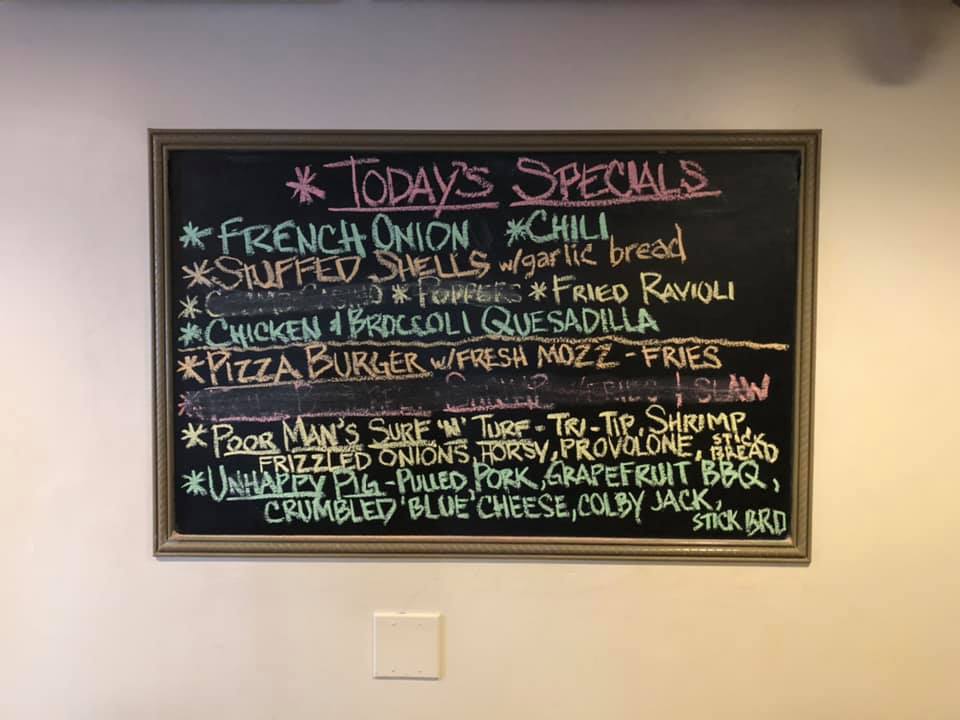 * TODAY'S SPECIALS
* FRENCH ONION * CHILI
* STUFFED SHELLS w/garlic bread
* * POPPERS * FRIED RAVIOLI
* CHICKEN & BROCCOLI QUESADILLA
* PIZZA BURGER W/FRESH MOZZ - FRIES
* / SLAW
* POOR MAN'S SURF 'N' TURF - TRI-TIP, SHRIMP,
FRIZZLED ONIONS, HORSY, PROVOLONE, STICK BREAD
* UNHAPPY PIG - PULLED PORK, GRAPEFRUIT BBQ,
CRUMBLED 'BLUE' CHEESE, COLBY JACK,
STICK BRD